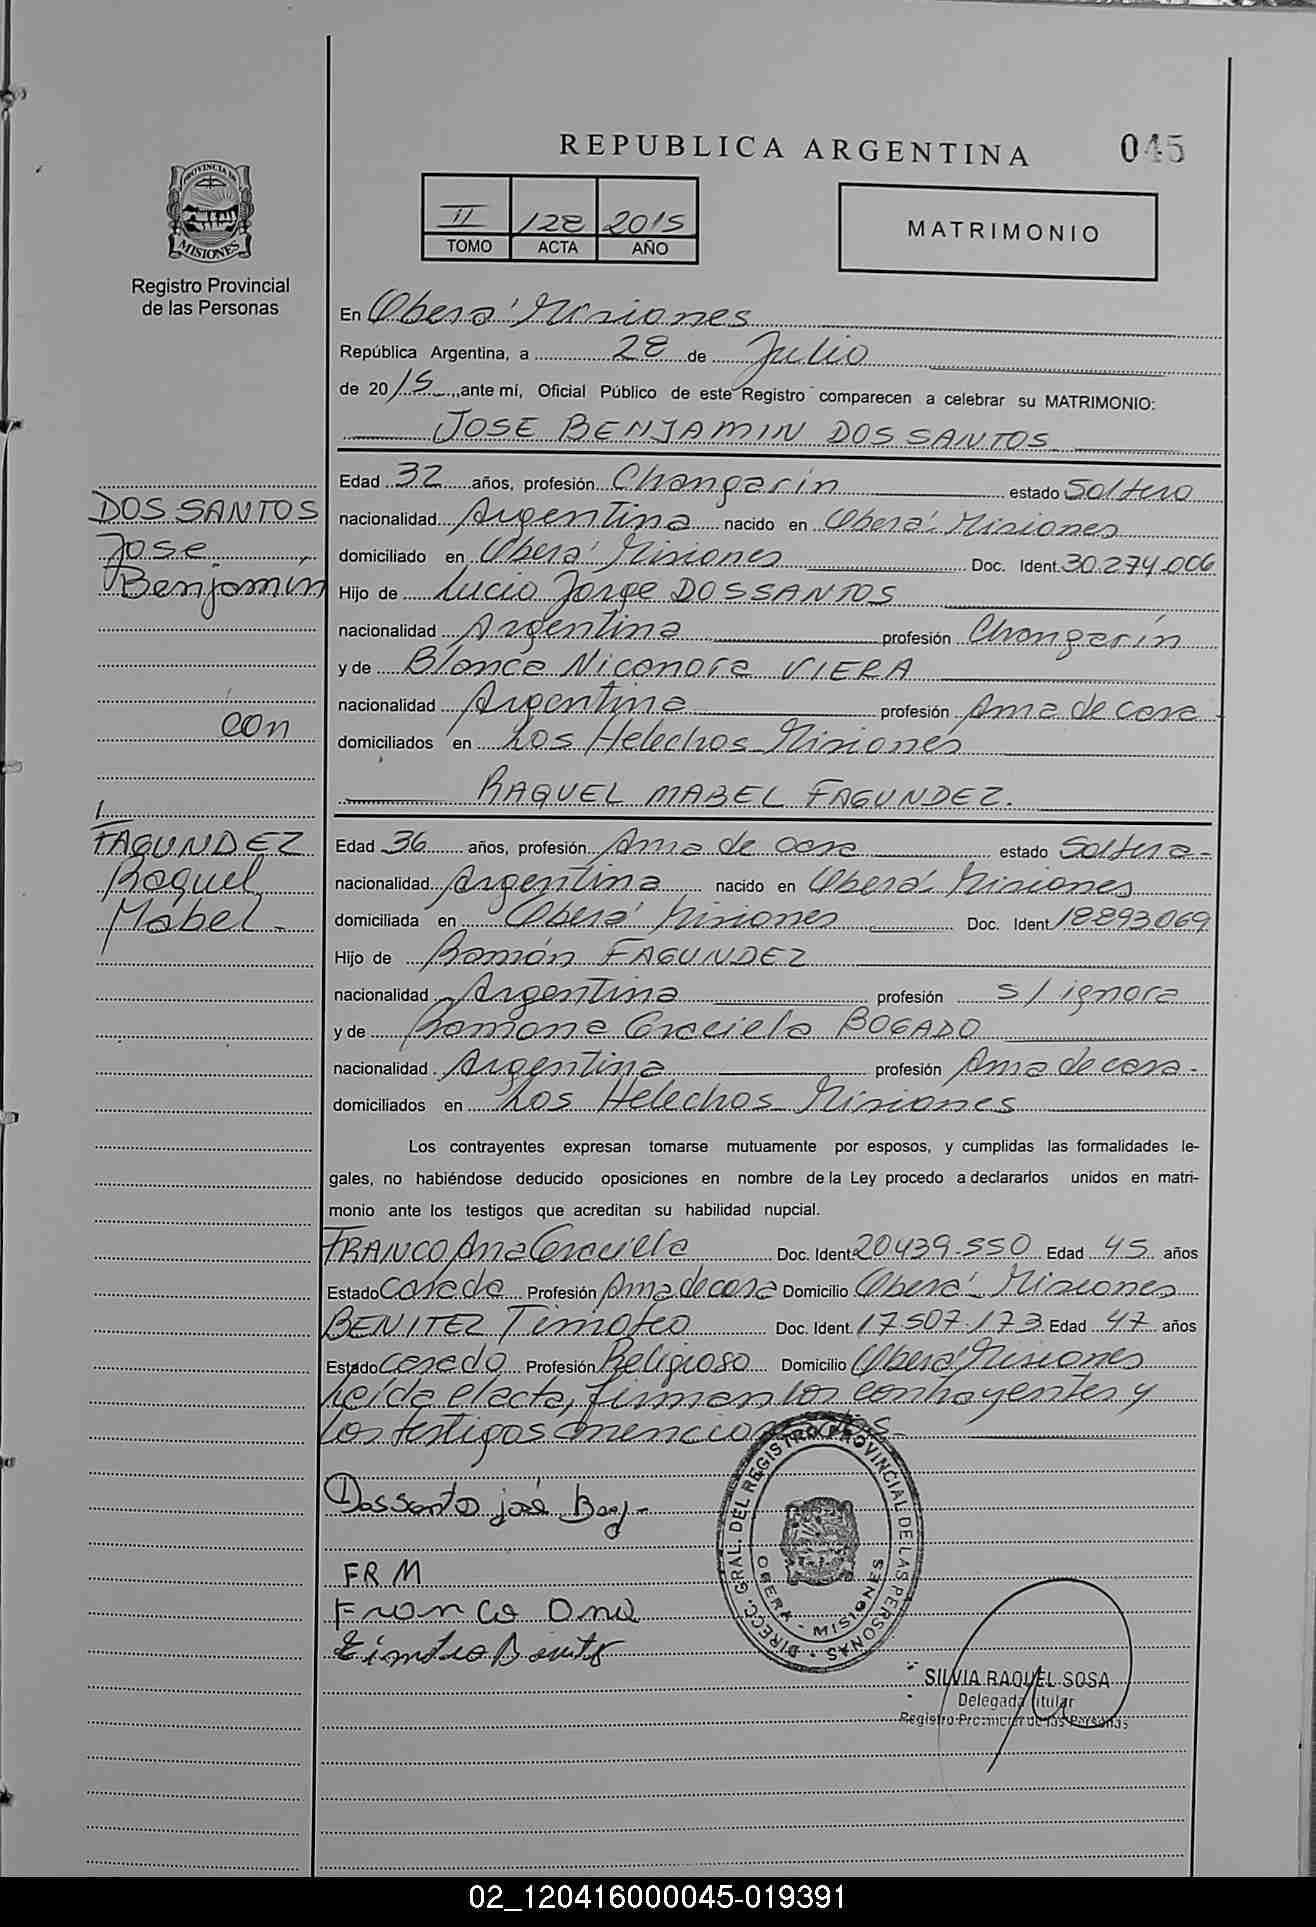 REPUBLICA ARGENTINA
045
PROVINCIA DE
MISIONES
Registro Provincial
de las Personas
II 128 2015
TOMO ACTA AÑO
MATRIMONIO
En Oberá Misiones
República Argentina, a 28 de Julio
de 2015, ante mí, Oficial Público de este Registro comparecen a celebrar su MATRIMONIO:
JOSE BENJAMIN DOS SANTOS
Edad 32 años, profesión Changarín estado Soltero
nacionalidad Argentina nacido en Oberá Misiones
domiciliado en Oberá Misiones Doc. Ident. 30.274.006
Hijo de Lucio Jorge DOS SANTOS
nacionalidad Argentina profesión Changarín
y de Blanca Nicanora VIERA
nacionalidad Argentina profesión Ama de casa
domiciliados en Los Helechos Misiones
DOS SANTOS
Jose
Benjamín
con
FAGUNDEZ
Raquel
Mabel
RAQUEL MABEL FAGUNDEZ.
Edad 36 años, profesión Ama de casa estado Soltera
nacionalidad Argentina nacido en Oberá Misiones
domiciliada en Oberá Misiones Doc. Ident. 18893069
Hijo de Ramón FAGUNDEZ
nacionalidad Argentina profesión s/ ignora
y de Ramona Graciela BOGADO
nacionalidad Argentina profesión Ama de casa
domiciliados en Los Helechos Misiones
Los contrayentes expresan tomarse mutuamente por esposos, y cumplidas las formalidades le-
gales, no habiéndose deducido oposiciones en nombre de la Ley procedo a declararlos unidos en matri-
monio ante los testigos que acreditan su habilidad nupcial.
FRANCO Ana Graciela Doc. Ident 20439.550 Edad 45 años
Estado casada Profesión Ama de casa Domicilio Oberá Misiones
BENITEZ Timoteo Doc. Ident. 17.507.173 Edad 47 años
Estado casado Profesión Religioso Domicilio Oberá Misiones
Leída el acta, firman los contrayentes y
los testigos mencionados
Dos Santo josé Benj
FRM
Franco Ana
Timoteo Benitez
DIRECC. GRAL. DEL REGISTRO PROVINCIAL DE LAS PERSONAS
OBERA - MISIONES
SILVIA RAQUEL SOSA
Delegada Titular
Registro Provincial de las Personas
02_120416000045-019391